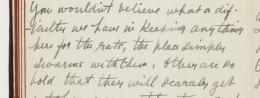 You wouldn't believe what a dif-
ficulty we have in keeping anything
here for the rats, the place simply
swarms with them, & they are so
bold that they will scarcely get